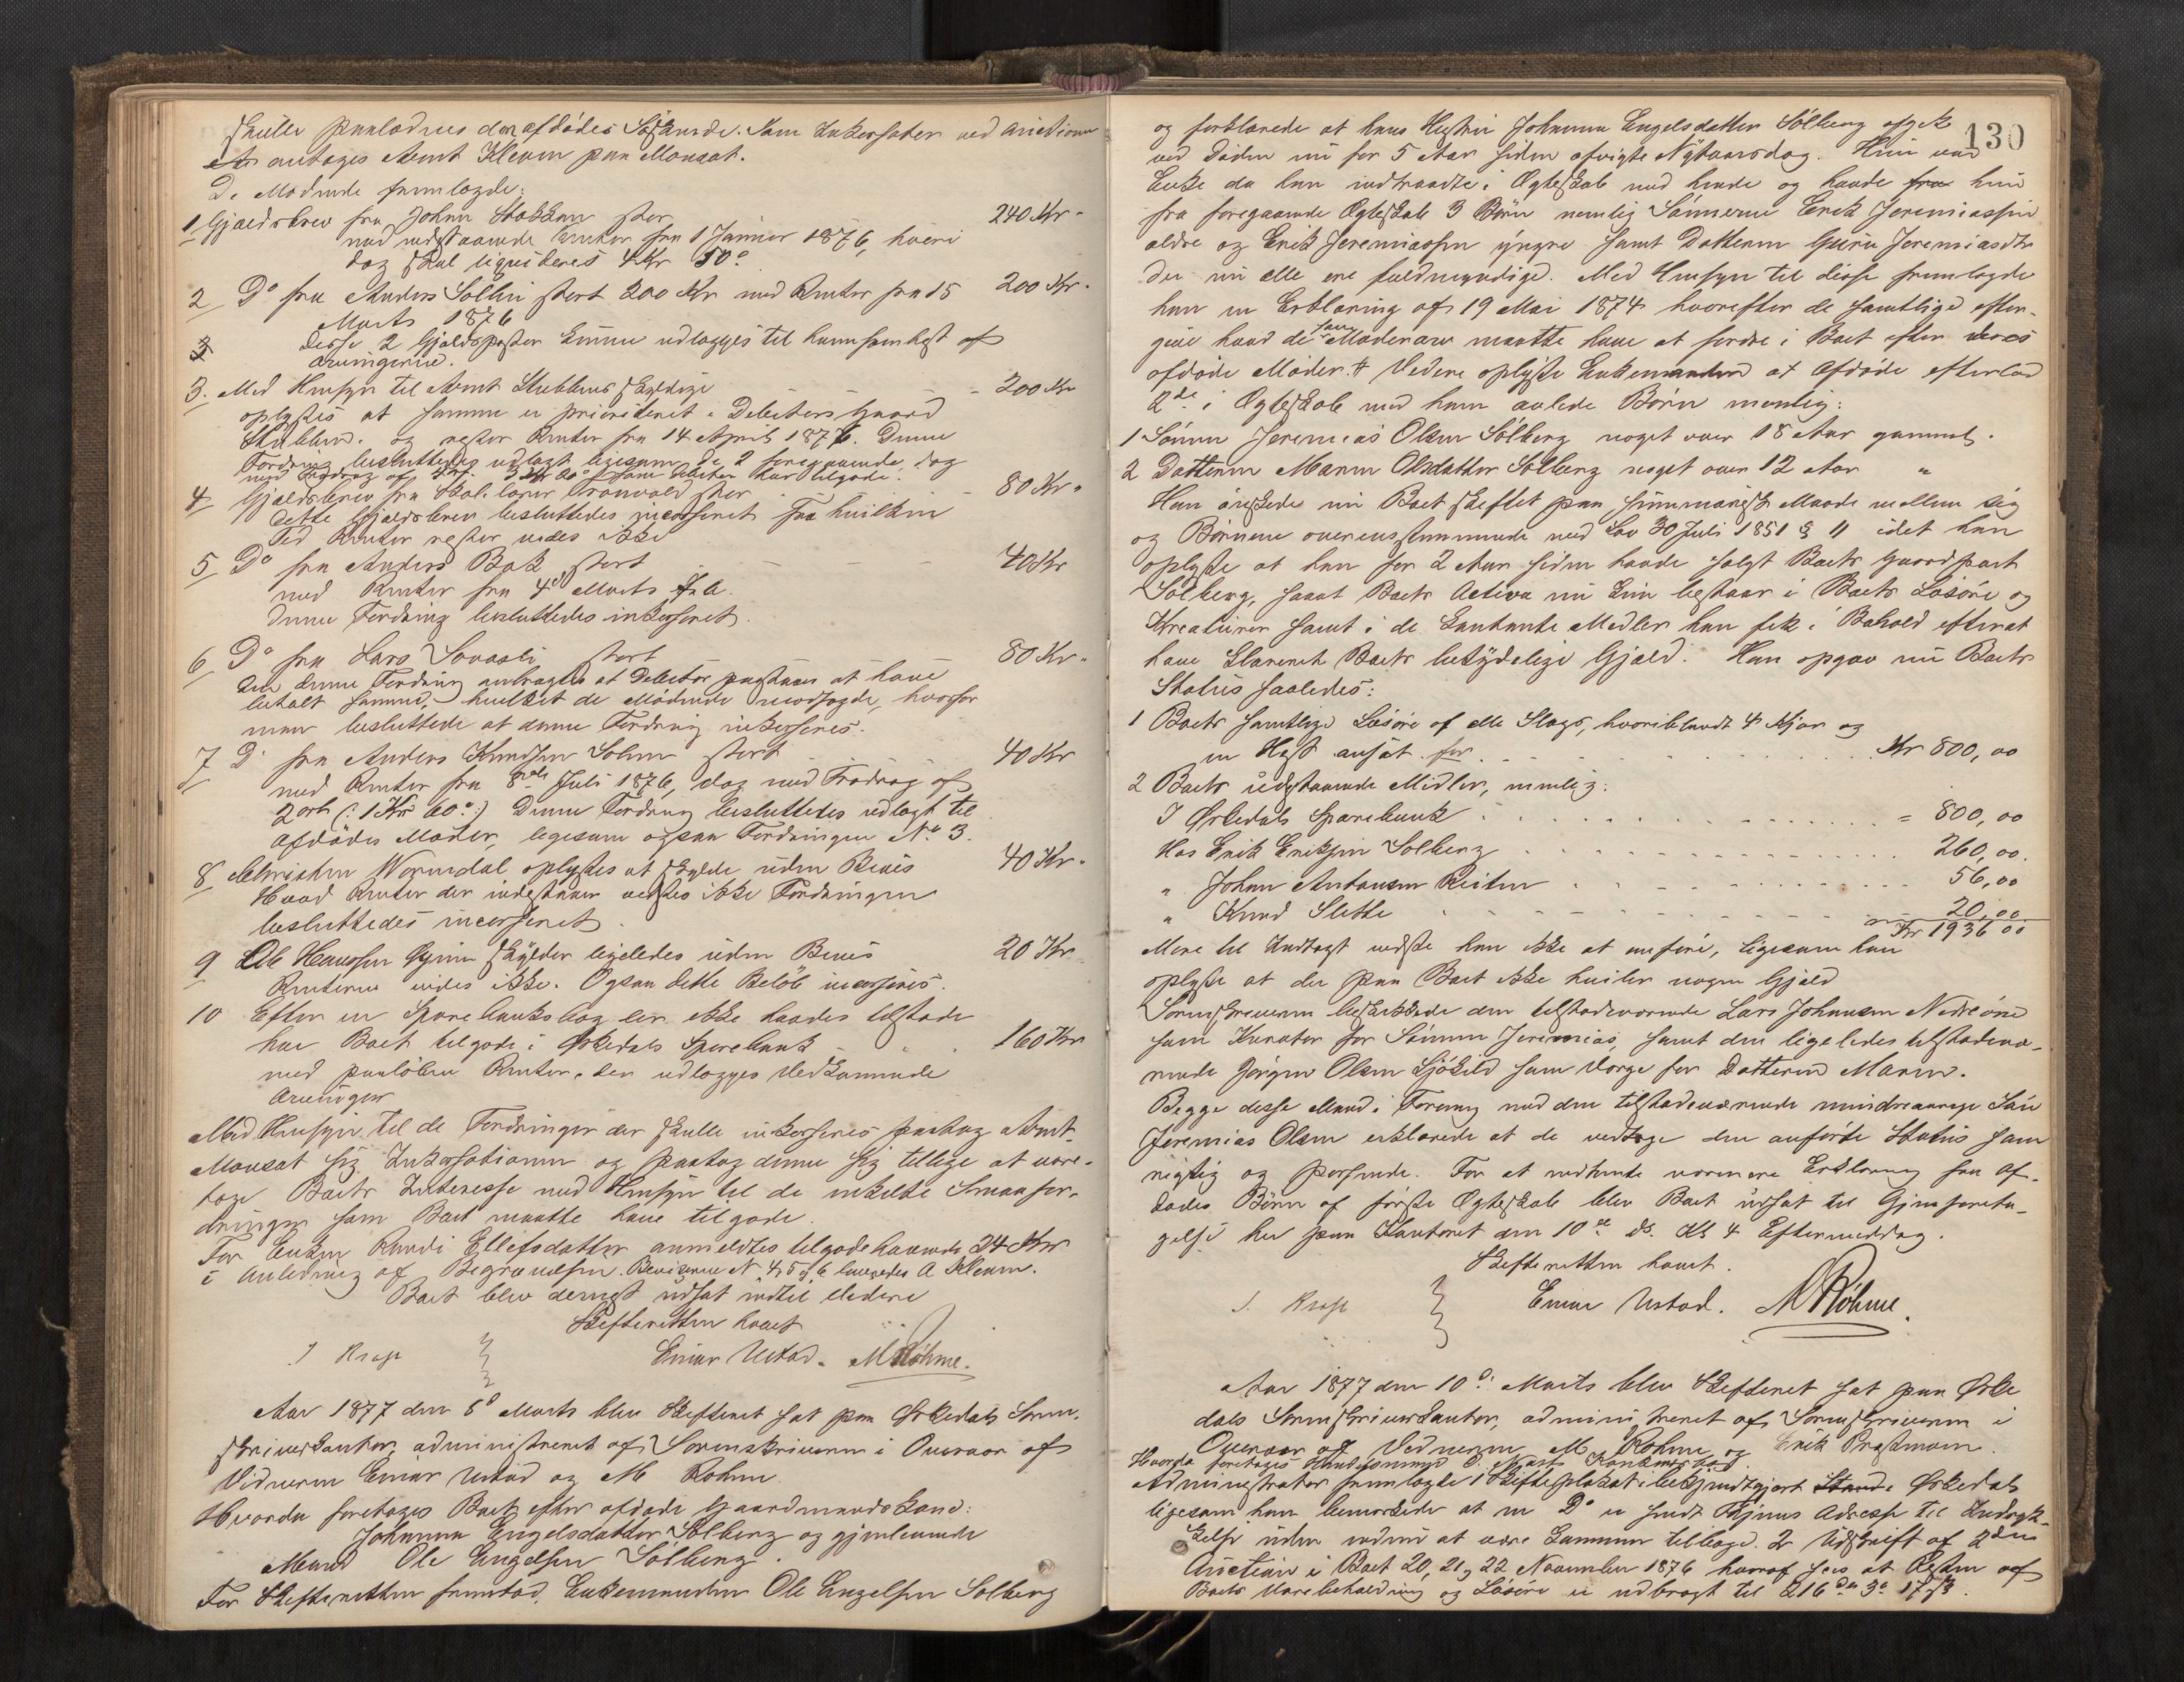 skulle paalødnes den afdødes Søskende. Som Inkassator ved Auctionen
antages Arnt Kleven paa Monset.
De Mødende fremlagde:
1 Gjældsbrev fra Johan Stokkan stor 240 Kr.
med vedstaaende Renter fra 1 Januar 1876, hvori
dog skal liqvideres 4 Kr 50 ø
2 Do fra Anders Solli stort 200 Kr med Renter fra 15 200 Kr.
Marts 1876
Disse 2 Gjældsposter kunne udlægges til hvemsomhelst af
Arvingerne.
3. Med Hensyn til Arnt Stubbens skyldige 200 Kr
oplystes at samme er prioriteret i Debitors Gaard
Stubben. og rester Renter fra 14 April 1876. Denne
Fordring besluttedes udlagt ligesom de 2 foregaaende, dog
med Fradrag af som Debitor har tilgode.
4 Gjældsbrev fra Skolelærer Grønvold stor 80 Kr.
Dette Gjældsbrev besluttedes incasseret fra hvilken
Tid Renter rester vides ikke
5 Do fra Anders Bak stort 40 Kr
med Renter fra 4de Marts f. A.
Denne Fordring besluttedes inkasseret.
6 Do fra Lars Sovasli stort 80 Kr.
Om denne Fordring anbragtes at Debitor paastaar at have
betalt samme, hvilket de Mødende modsagde, hvorfor
man besluttede at denne Fordring inkasseres.
7 Do fra Anders Knudsen Solem stort 40 Kr
med Renter fra 8de Juli 1876, dog med Fradrag af
2 ort (: 1 Kr 60 ø :) Denne Fordring besluttedes udlagt til
Afdødes Moder, ligesom ogsaa Fordringen No 3.
8 Christen Wormdal oplystes at skylde uden Bevis 40 Kr.
Hvad Renter der indestaaer vidstes ikke Fordringen
besluttedes incasseret
9 Ole Hanssen Gjønn skylder ligeledes uden Bevis 20 Kr
Renterne vides ikke. Ogsaa dette Beløb incasseres.
10 Efter en Sparebanksbog der ikke havdes tilstede
har Boet tilgode i Ørkedals Sparebank 160 Kr
med paaløbne Renter, der udlægges Vedkommende
Arvinger
Med Hensyn til de Fordringer der skulle inkasseres paatog Arnt
Monset sig Inkassationen og paatog denne sig tillige at vare-
tage Boets Interesse med Hensyn til de enkelte Smaafor-
dringer som Boet maatte have tilgode.
For Enken Randi Ellefsdatter anmeldtes tilgodehavende 24 Kr
i Anledning af Begravelsen. Beviserne N 4, 5 og 6 leveredes A Kleven.
Boet blev dernæst udsat indtil videre
Skifteretten hævet
J Krag Einar Ustad. M Röhme.
Aar 1877 den 6d Marts blev Skifteret sat paa Ørkedals Soren-
skriverkontor, administreret af Sorenskriveren i Overvær af
Vidnerne Einar Ustad og M Rohme
Hvorda foretoges Boet efter afdøde Gaardmandskone:
Johanna Engelsdatter Solberg og gjenlevende
Mand Ole Engelsen Solberg.
For Skifteretten fremstod Enkemanden Ole Engelsen Solberg
130
og forklarede at hans Hustru Johanna Engelsdatter Solberg afgik
ved Døden nu for 5 Aar siden afvigte Nytaarsdag. Hun var
Enke da han indtraadte i Ægteskab med hende og havde fra hun
fra foregaaende Ægteskab 3 Børn nemlig Sønnerne Erik Jeremiassen
ældre og Erik Jeremiassen yngre samt Datteren Guru Jeremiasdtr
der nu alle ere fuldmyndige. Med Hensyn til disse fremlagde
han en Erklæring af 19 Mai 1874 hvorefter de samtlige efter-
give hvad de som Mødrenarv maatte have at fordre i Boet efter deres
afdøde Moder. Videre oplyste Enkemanden at Afdøde efterlod
2de i Ægteskab med ham avlede Børn nemlig:
1 Sønnen Jeremias Olsen Solberg noget over 18 Aar gammel.
2 Datteren Maren Olsdatter Solberg noget over 12 Aar "
Han ønskede nu Boet skiftet paa summarisk Maade mellem sig
og Børnene overensstemmende med Lov 30 Juli 1851 § 11 idet han
oplyste at han for 2 Aar siden havde solgt Boets Gaardpart
Solberg, saaat Boets Activa nu kun bestaar i Boets Løsøre og
Kreaturer samt i de kontante Midler han fik i Behold efterat
have klareret Boets betydelige Gjæld. Han opgav nu Boets
Status saaledes:
1 Boets samtlige Løsøre af alle Slags, hvoriblandt 4 Kjør og
en Hest ansat for Kr 800,00
2 Boets udestaaende Midler, nemlig:
I Ørkedals Sparebank = 800,00
Hos Erik Eriksen Solberg 260,00.
" Johan Antonsen Reiten 56,00
" Knud Slette 20,00
Kr 1936 00
Mere til Indtægt vidste han ikke at anføre, ligesom han
oplyste at der paa Boet ikke hviler nogen Gjæld
Sorenskriveren beskikkede den tilstedeværende Lars Johnsen Nedreøne
som Kurator for Sønnen Jeremias, samt den ligeledes tilstedevæ-
rende Jørgen Olsen Ljøkild som Værge for Datteren Maren.
Begge disse Mænd i Forening med den tilstedeværende mindreaarige Søn
Jeremias Olsen erklærede at de vedtage den anførte Status som
rigtig og passende. For at indhente nærmere Erklæring fra Af-
dødes Børn af første Ægteskab blev Boet udsat til Gjenforeta-
gelse her paa Kontoret den 10de ds. Kl 4 Eftermiddag.
Skifteretten hævet.
J. Krag Einar Ustad. M Röhme.
Aar 1877 den 10d Marts blev Skifteret sat paa Ørke
dals Sorenskriverkontor, administreret af Sorenskriveren i
Overvær af Vidnerne M Rohme og Erik Præstmoen.
Hvorda foretoges
Administrator fremlagde 1 Skifteplakat bekjendtgjort Ørkedals
ligesom han bemærkede at en Do er sendt Rigens Adresse til Indryk-
kelse uden endnu at være kommen tilbage. 2 Udskrift af 2den
Auction i Boet 20, 21, 22 November 1876 hvoraf sees at Resten af
Boets Varebeholdning og Løsøre er udbragt til 216